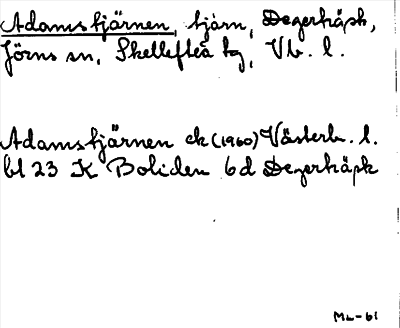 Adamstjärnen, tjärn, Degerträsk,
Jörns sn, Skellefteå tg, Vb. l.
Adamstjärnen ek (1960) Västerb. l.
bl 23 K Boliden 6d Degerträsk
ML-61